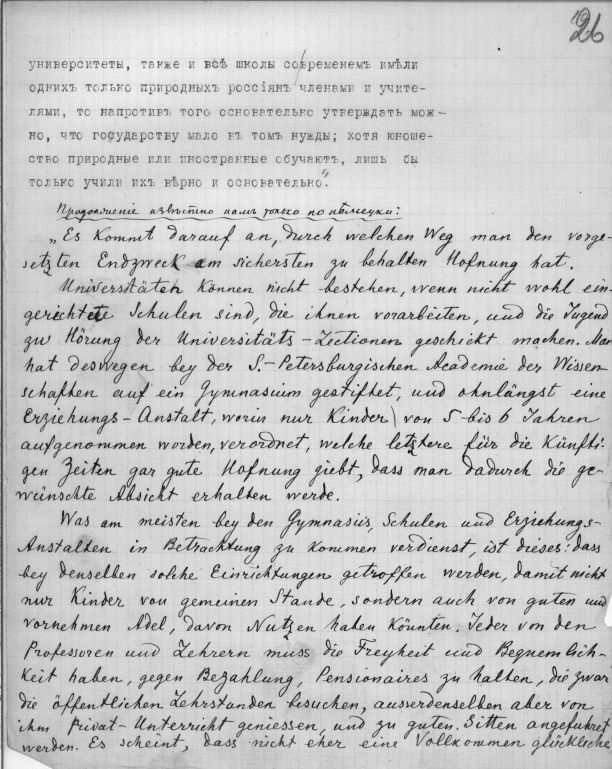 26
университеты, также и всѣ школы современемъ имѣли
однихъ только природныхъ россіянъ членами и учите-
лями, то напротивъ того основательно утверждать мож-
но, что государству мало въ томъ нужды; хотя юноше-
ство природные или иностранные обучаютъ, лишь бы
только учили ихъ вѣрно и основательно".
Продолженіе извѣстно намъ только по нѣмецки:
„Es kommt darauf an, durch welchen Weg man den vorge-
setzten Endzweck am sichersten zu behalten Hofnung hat.
Universitäten können nicht bestehen, wenn nicht wohl ein-
gerichtete Schulen sind, die ihnen vorarbeiten, und die Jugend
zu Hörung der Universitäts-Lectionen geschickt machen. Man
hat deswegen bey der S.-Petersburgischen Academie der Wissen
schaften auf ein Gymnasium gestiftet, und ohnlängst eine
Erziehungs-Anstalt, worin nur Kinder von 5 bis 6 Jahren
aufgenommen worden, verordnet, welche letztere für die Künfti-
gen Zeiten gar gute Hofnung giebt, dass man dadurch die ge-
wünschte Absicht erhalten werde.
Was am meisten bey den Gymnasiis, Schulen und Erziehungs-
Anstalten in Betrachtung zu kommen verdienst, ist dieses: dass
bey denselben solche Einrichtungen getroffen werden, damit nicht
nur Kinder von gemeinen Stande, sondern auch von guten und
vornehmen Adel, davon Nutzen haben könnten. Jeder von den
Professoren und Lehrern muss die Freyheit und Bequemlich-
keit haben, gegen Bezahlung, Pensionaires zu halten, die zwar
die öffentlichen Lehrstunden besuchen, ausserdenselben aber von
ihm Privat-Unterricht geniessen, und zu guten Sitten angeführet
werden. Es scheint, dass nicht eher eine Vollkommen glückliche